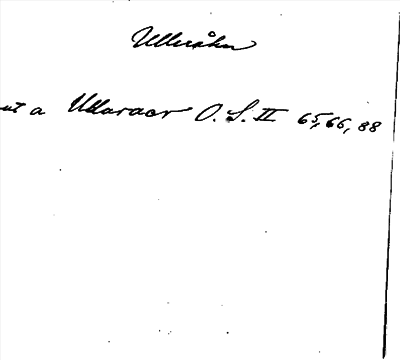 Ulleråker
ut a Ullaraer O. S. II 65, 66, 88